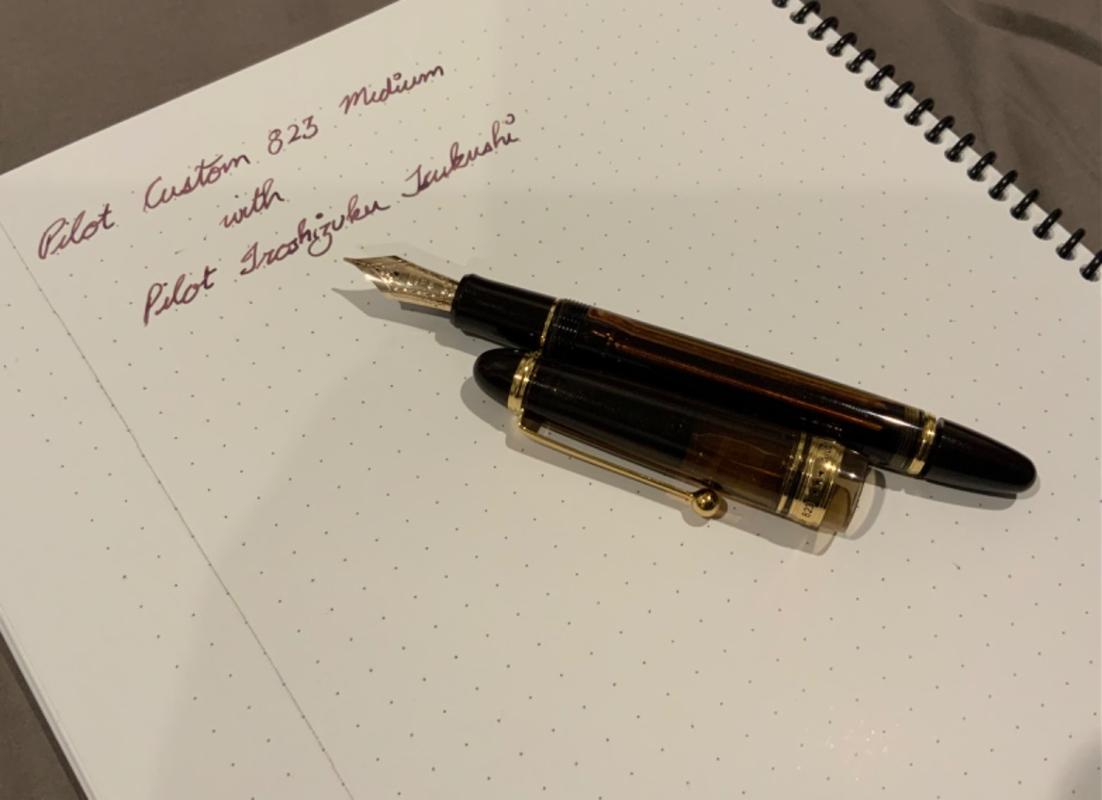 Pilot Custom 823 Medium
with
Pilot Iroshizuku Tsukushi
823